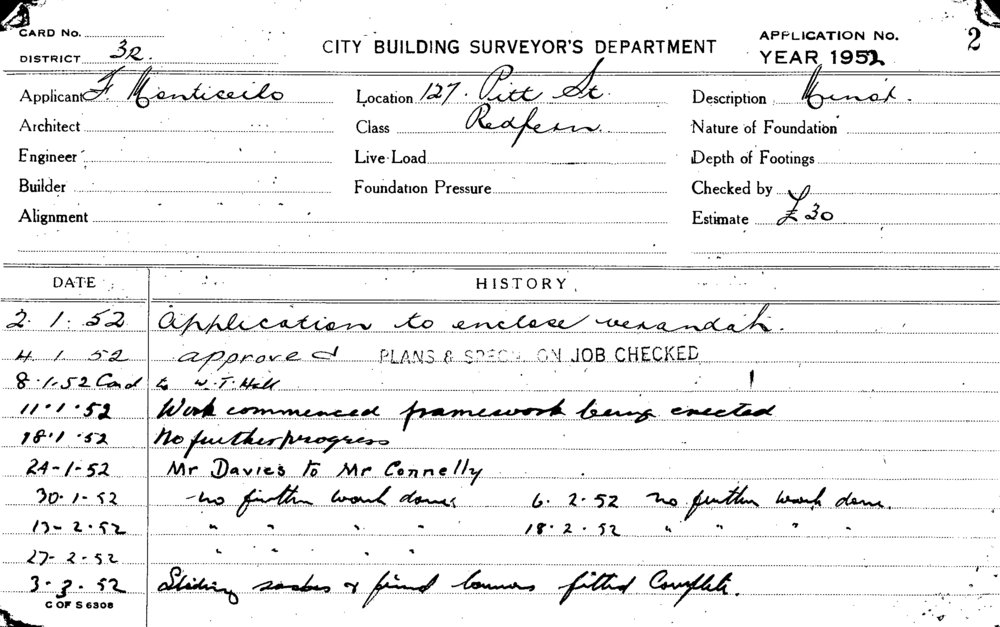 CARD No.
DISTRICT 3R.
CITY BUILDING SURVEYOR'S DEPARTMENT
APPLICATION No.
YEAR 1952
2
Applicant F. Monticello Location 127. Pitt St. Description Minor.
Architect Class Redfern. Nature of Foundation
Engineer Live Load Depth of Footings
Builder Foundation Pressure Checked by
Alignment Estimate £30
DATE HISTORY
2. 1. 52 Application to enclose verandah.
4. 1. 52 approved PLANS & SPECS. ON JOB CHECKED
8.1.52 Card to W.T. Hall
11.1.52 Work commenced framework being erected
18.1.52 No further progress
24-1-52 Mr Davies to Mr Connelly
30.1.52 no further work done. 6.2.52 no further work done.
13-2.52 " " " " 18.2.52 " " " "
27-2.52 " " " "
3.3.52 Sliding sashes & fitted Complete.
C OF S 6308